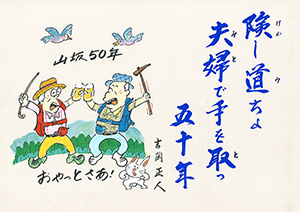 険し道ちょ
夫婦で手を取っ
五十年
山坂50年
おやっとさあ!
吉岡正人